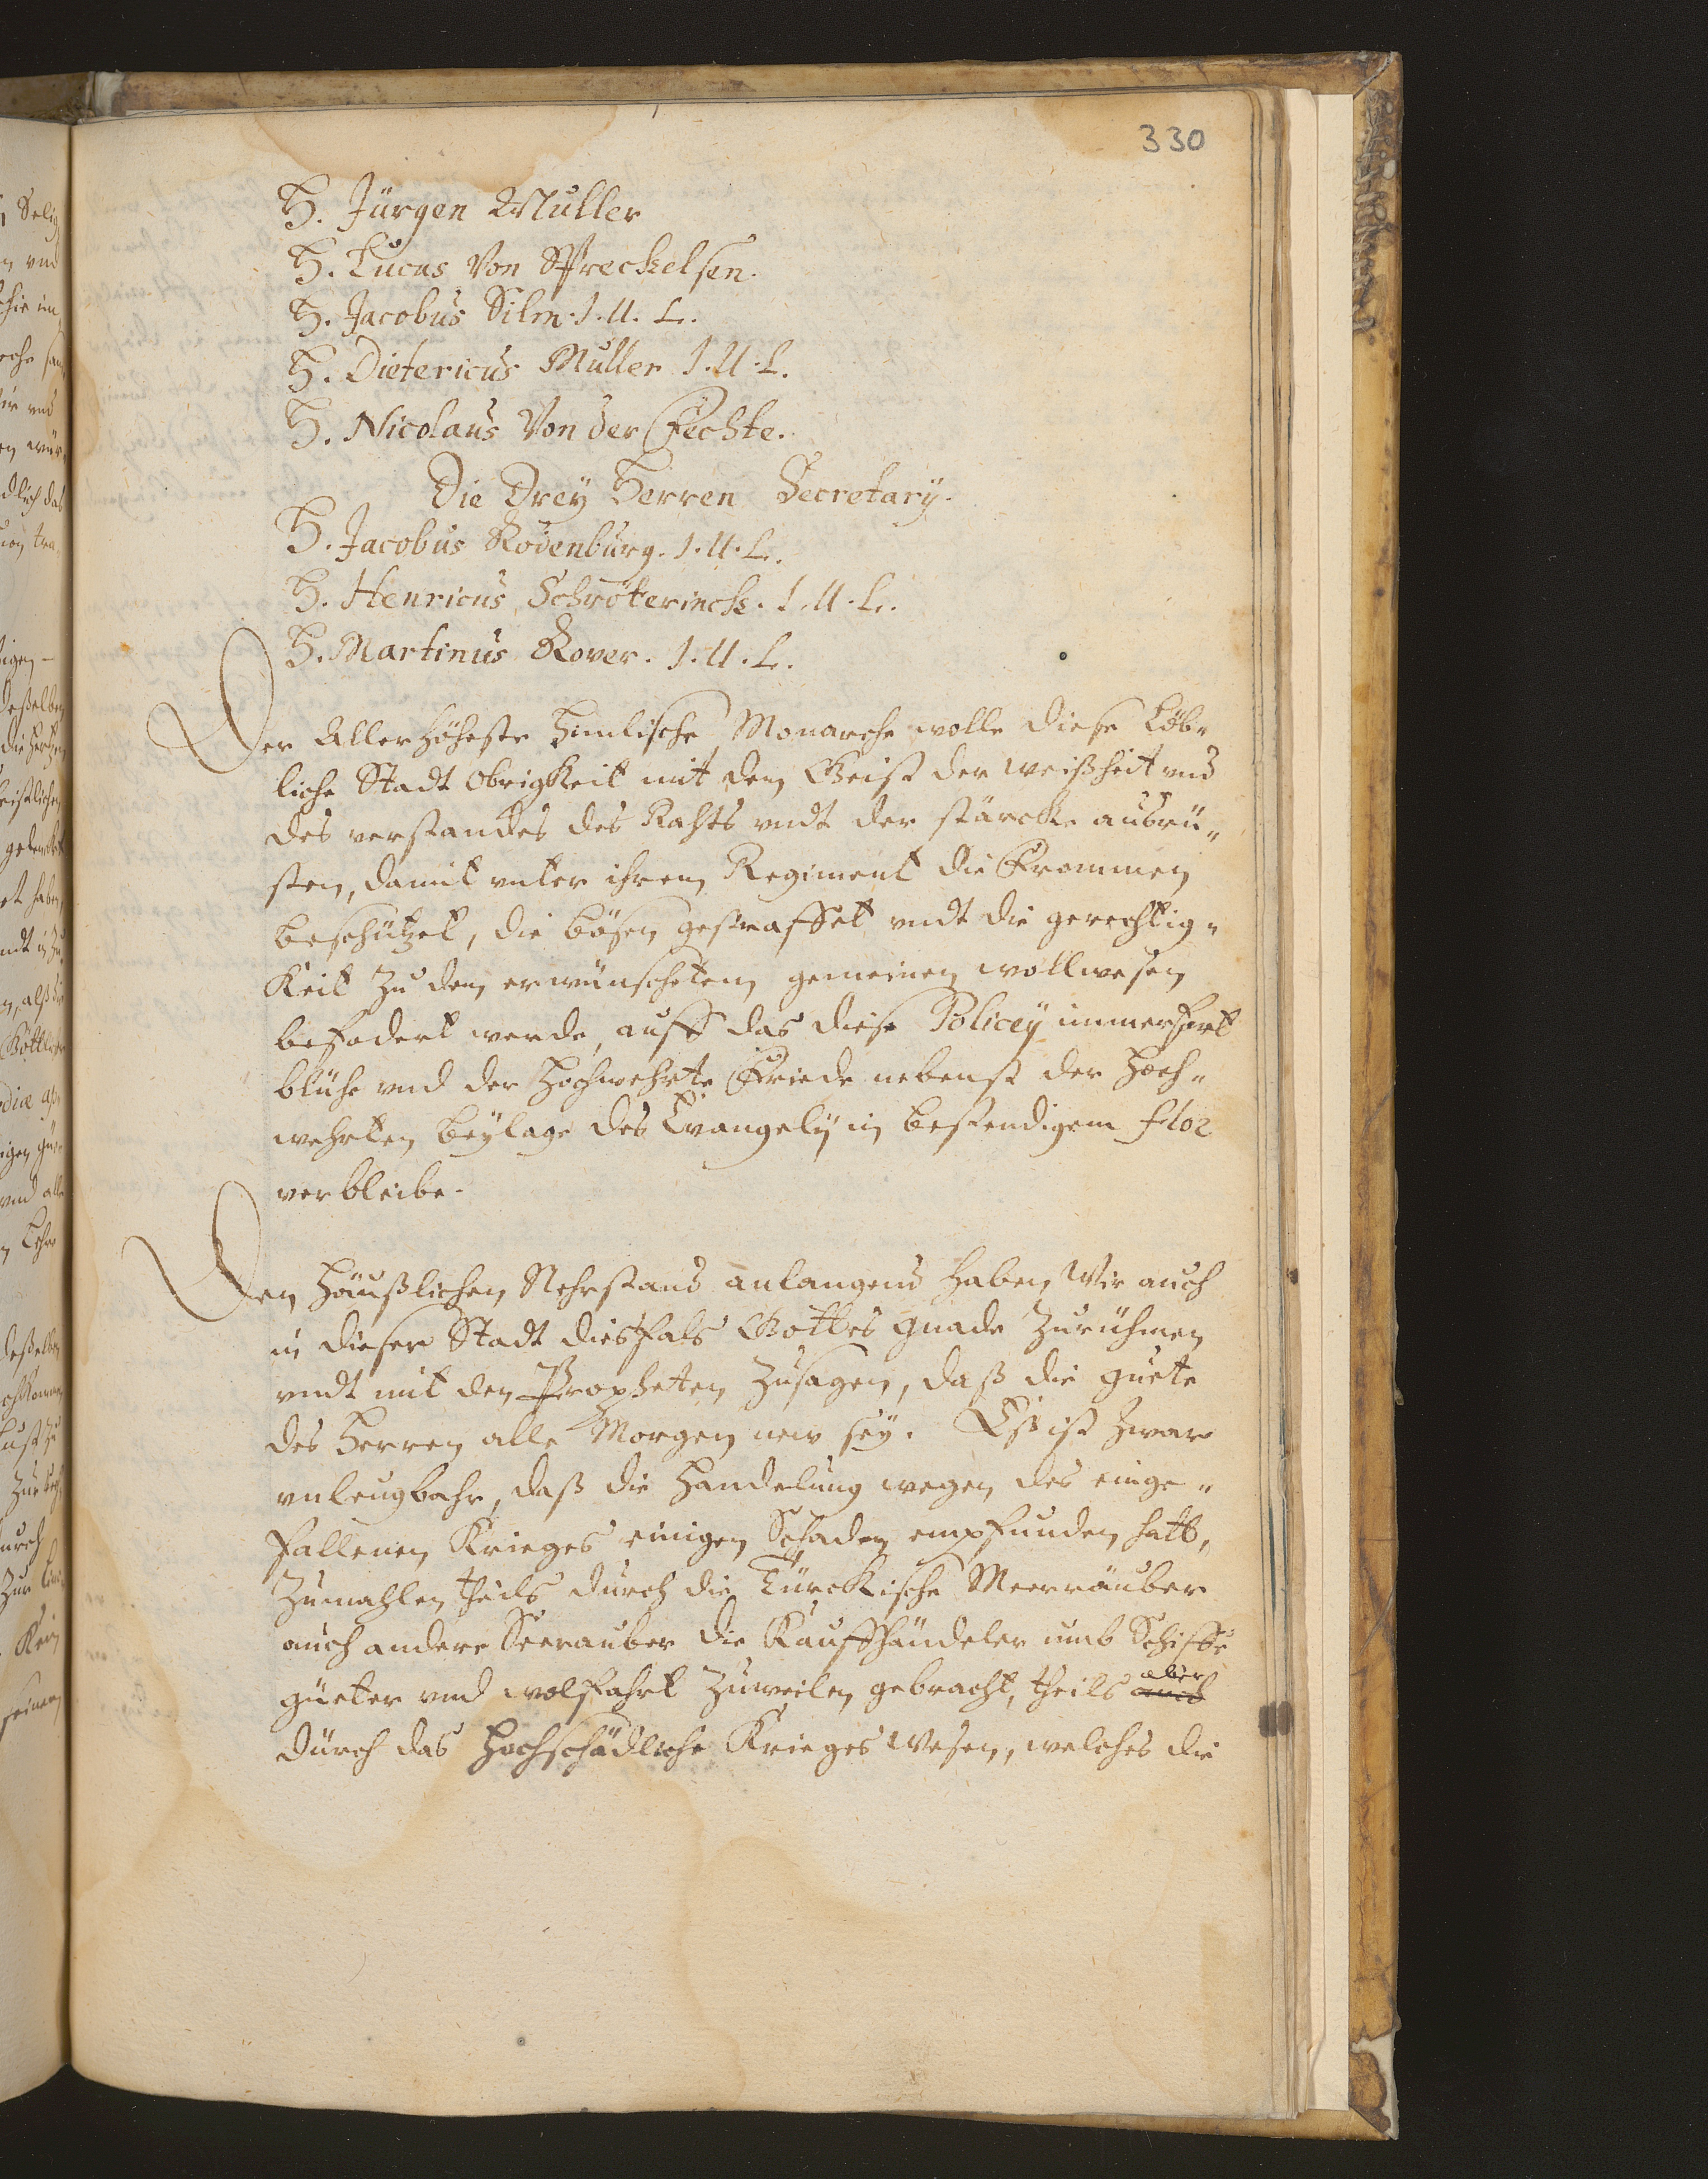 330
H. Jürgen Müller
H. Lucas Von Spreckelsen.
H. Jacobus Silm. J. U. L.
H. Dietericus Müller J. U. L.
H. Nicolaus Von der Fechte.
Die Drey Herren Secretarÿ.
H. Jacobus Rodenburg. J. U. L.
H. Henricus Schröterinck. J. U. L.
H. Martinus Rover. J. U. L.
Der Allerhöheste Himlische Monarche wolle diese Löb„
liche Stadt Obrigkeit mit dem Geist der weißheit und
des verstandes des Rahts undt der stärcke ausrü„
sten, damit unter ihrem Regiment die Frommen
beschützet, die bösen gestraffet undt die gerechtig„
keit zu dem erwünscheten gemeinen wollwesen
befodert werde, auff das diese Policeÿ immerfort
blühe und der Hochwehrte Friede nebenst der Hoch„
wehrten beÿlage des Evangelÿ in bestendigem flor
verbleibe.
Den Häußlichen Nehrstand anlangend haben Wir auch
in dieser Stadt diesfals Gottes gnade zurühmen
undt mit den Propheten zusagen, daß die guete
des Herren alle Morgen new seÿ. Eß ist zwar
unleugbahr, daß die Handelung wegen des einge„
fallenen Krieges einigen Schaden empfunden hatt,
zumahlen theils durch die Türckische Meerräuber
auch andere Seerauber die Kauffhändeler umb Schiffe
güeter und wolfahrt zuweilen gebracht, theils aber auch
durch das Hochschädliche Krieges Wesen, welches die